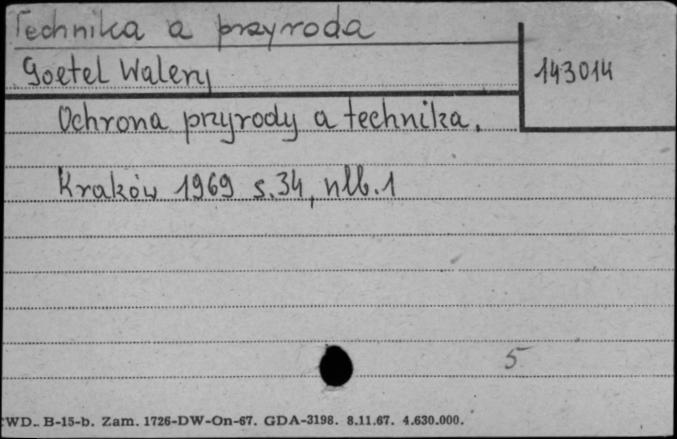 Technika a przyroda
Goetel Walery
143014
Ochrona przyrody a technika.
Kraków 1969 s.34, nlb.1
5
CWD. B-15-b. Zam. 1726-DW-On-67. GDA-3198. 8.11.67. 4.630.000.